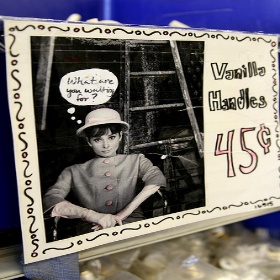 What are
you waiting
for?
Vanilla
Handles
45¢